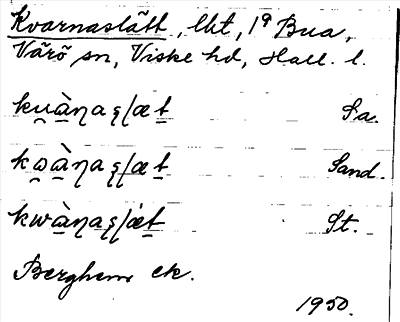 Kvarnaslätt, lht, 1⁹ Bua,
Värö sn, Viske hd, Hall. l.
ku̯àɳas̨ʃæt Sa.
kω̯àɳas̨ʃæt Sand.
kwàɳas̨ʃæt St.
Berghem ek.
1950.